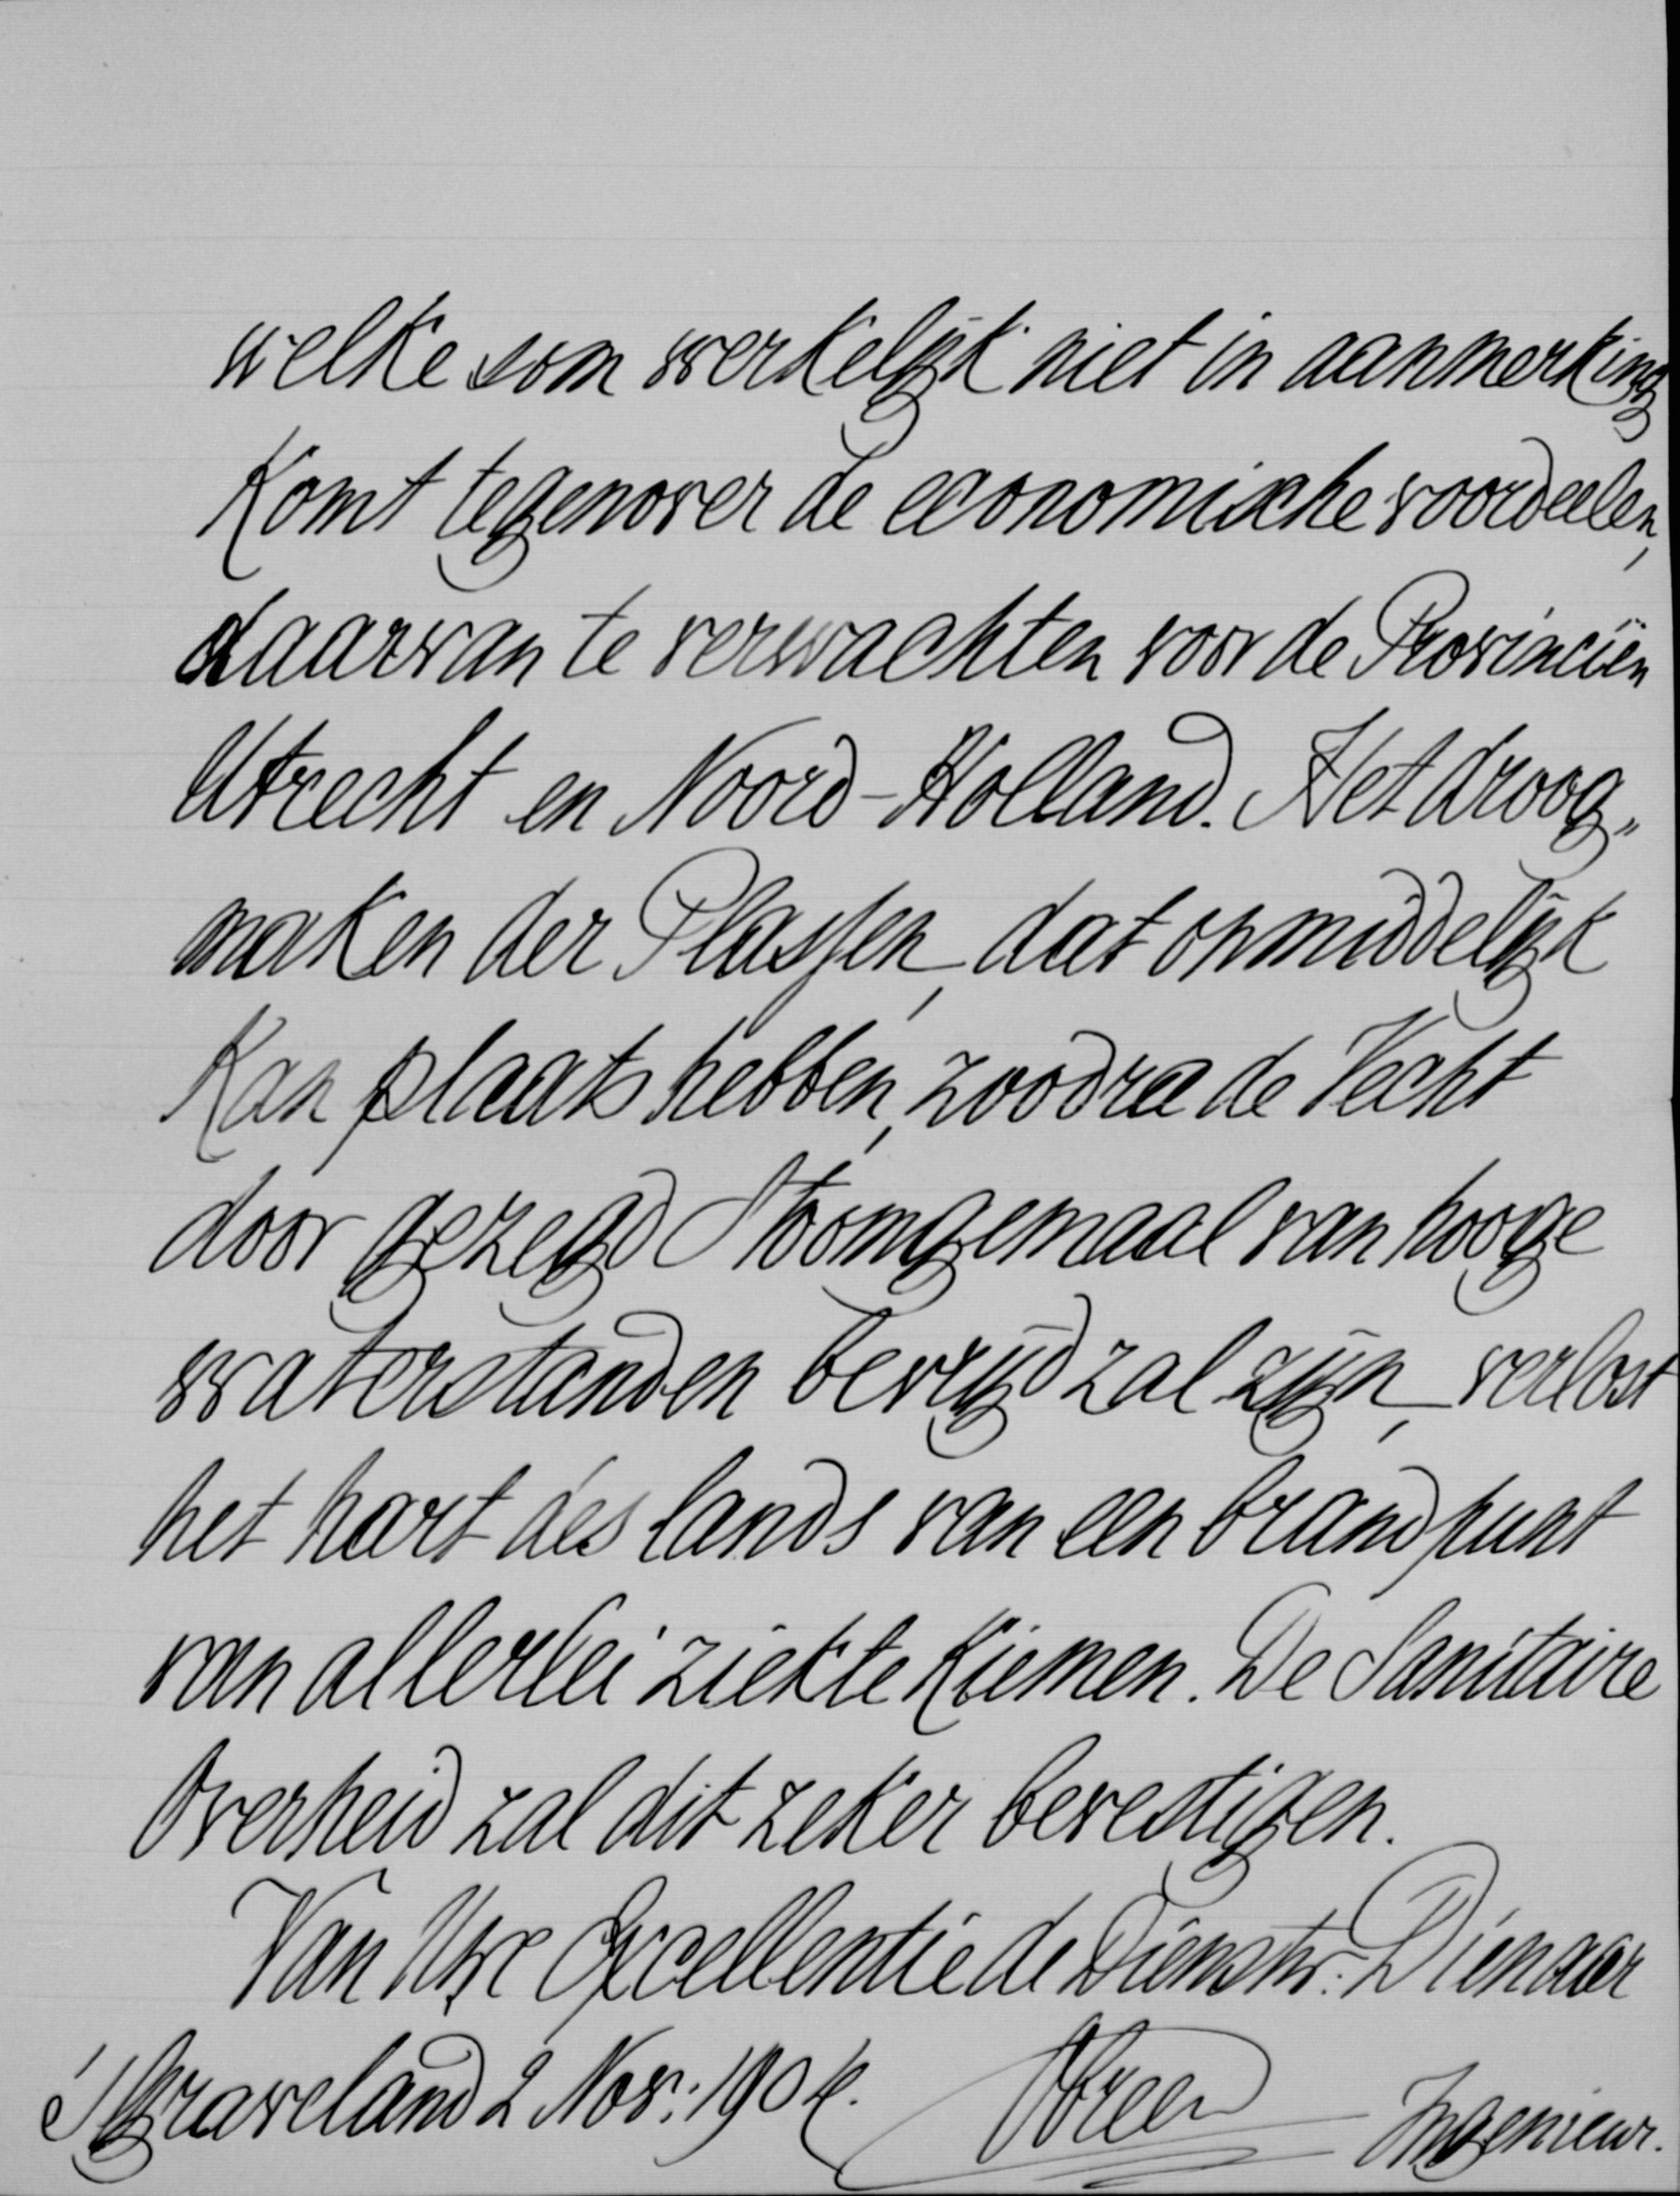 welke som werkelijk niet in aanmerking
komt tegenover de economische voordeelen,
daarvan te verwachten voor de Provinciën
Utrecht en Noord-Holland. Het droog„
maken der Plassen, dat onmiddelijk
kan plaats hebben, zoodra de Vecht
door gezegd Stoomgemaal van hooge
waterstanden bevrijd zal zijn, verlost
het hart des lands van een brandpunt
van allerlei ziekte kiemen. De Sanitaire
Overheid zal dit zeker bevestigen.
Van Uwe Excellentie de Dienstw. Dienaar
'S Graveland 2 Nov: 1904. Ingenieur.